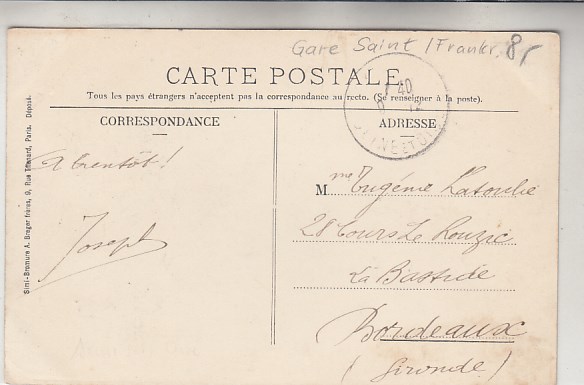 Gare Saint /Frankr. 8,-
CARTE POSTALE
Tous les pays étrangers n'acceptent pas la correspondance au recto. (Se renseigner à la poste).
CORRESPONDANCE
A bientôt!
Joseph
Simi-Bromure A. Breger frères, 9, Rue Thénard, Paris. Déposé.
ADRESSE
40
SEINE ET
Mme Eugénie Latouche
28 Cours Le Rouzic
La Bastide
Bordeaux
(Gironde)